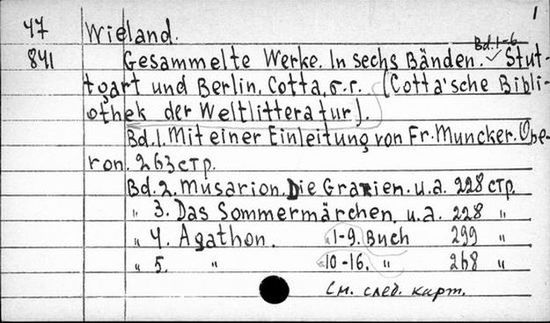 1
47 Wieland.
Bd. 1-6
841 Gesammelte Werke. In sechs Bänden. Stut-
tgart und Berlin, Cotta, б.г. (Cotta'sche Bibli-
othek der Weltlitteratur).
Bd.1. Mit einer Einleitung von Fr. Muncker. Obe-
ron. 263 стр.
Bd.2. Musarion. Die Grazien. u.a. 228 стр.
„ 3. Das Sommermärchen. u.a. 228 „
„ 4. Agathon. 1-9. Buch 299 „
„ 5. „ 10-16. „ 268 „
См. след. карт.